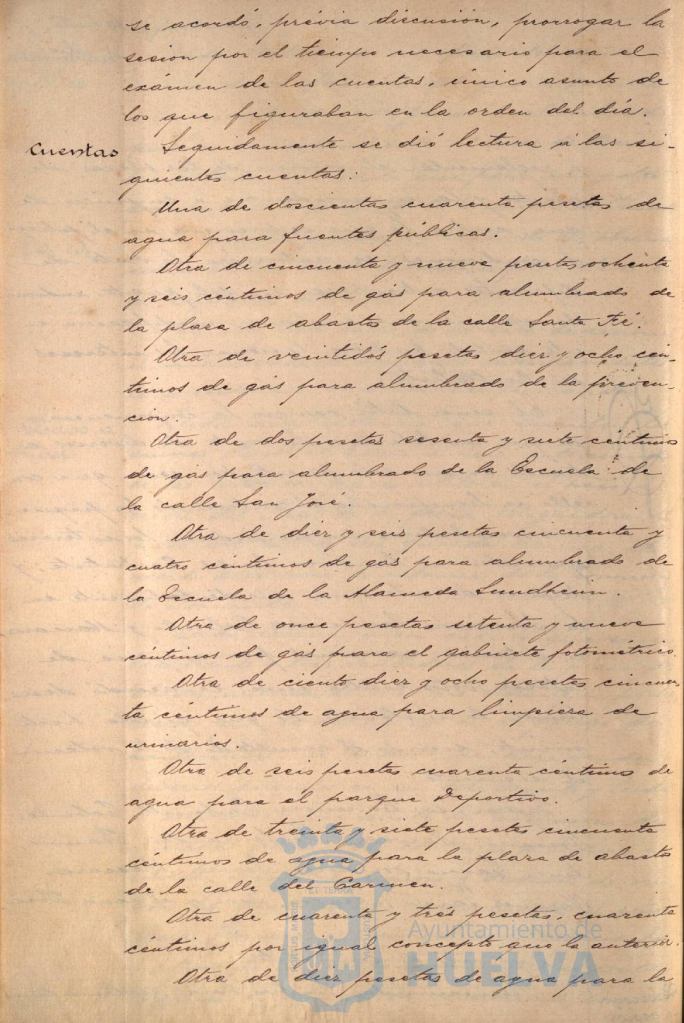 se acordó, prévia discusión, prorrogar la
sesion por el tiempo necesario para el
exámen de las cuentas, único asunto de
los que figuraban en la orden del día.
Cuentas
Seguidamente se dió lectura á las si-
guientes cuentas:
Una de doscientas cuarenta pesetas de
agua para fuentes públicas.
Otra de cincuenta y nueve pesetas ochenta
y seis céntimos de gás para alumbrado de
la plaza de abastos de la calle Santa Fé.
Otra de veintidós pesetas diez y ocho cén-
timos de gás para alumbrado de la preven-
ción.
Otra de dos pesetas sesenta y siete céntimos
de gás para alumbrado de la Escuela de
la calle San José.
Otra de diez y seis pesetas cincuenta y
cuatro céntimos de gás para alumbrado de
la Escuela de la Alameda Sundheim.
Otra de once pesetas setenta y nueve
céntimos de gás para el gabinete fotométrico.
Otra de ciento diez y ocho pesetas cincuen-
ta céntimos de agua para limpieza de
urinarios.
Otra de seis pesetas cuarenta céntimos de
agua para el parque Deportivo.
Otra de treinta y siete pesetas cincuenta
céntimos de agua para la plaza de abastos
de la calle del Carmen.
Otra de cuarenta y trés pesetas, cuarenta
céntimos por igual concepto que la anterior.
Otra de diez pesetas de agua para la
Ayuntamiento de
HUELVA